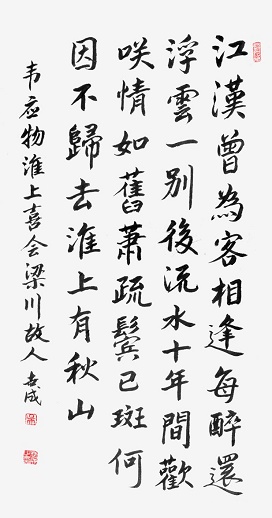 江漢曾為客相逢每醉還
浮雲一别後流水十年間歡
咲情如舊蕭疏鬓已斑何
因不歸去淮上有秋山
韦应物淮上喜会梁川故人